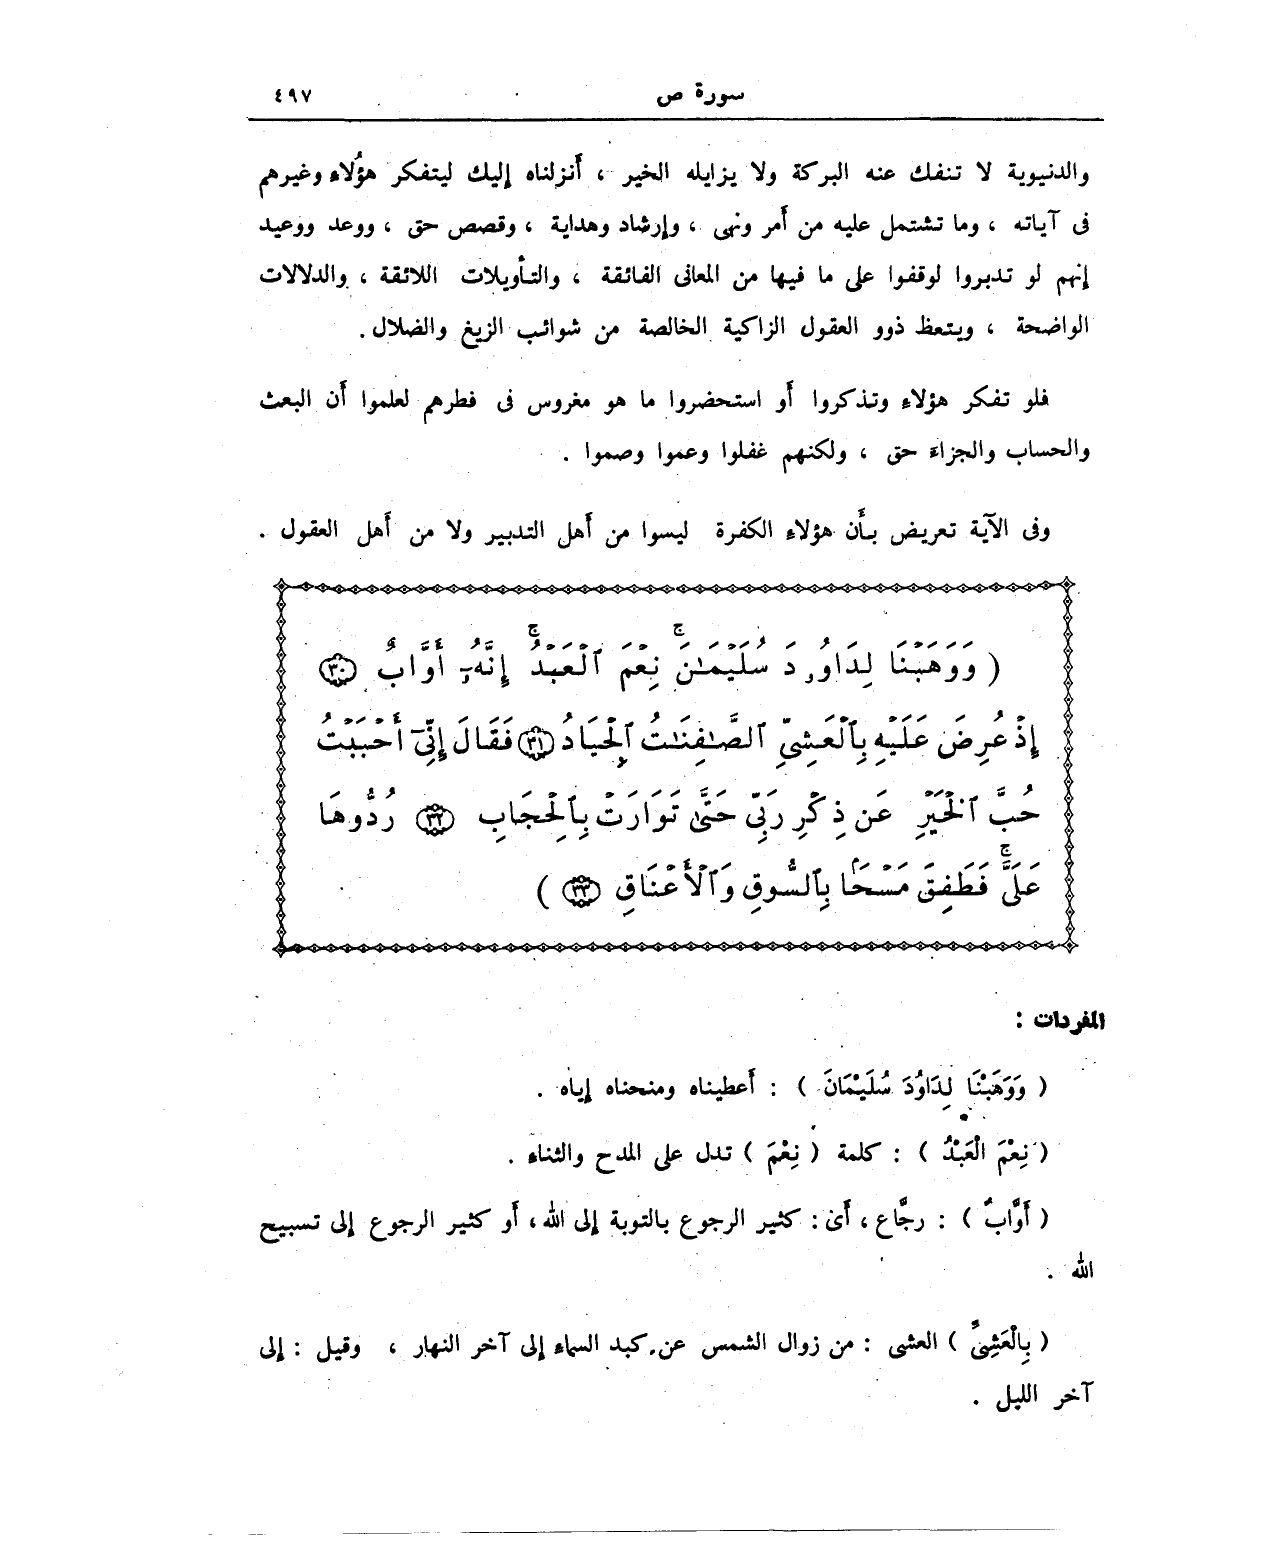 سورة ص
٤٩٧
والدنيوية لا تنفك عنه البركة ولا يزايله الخير ، أنزلناه إليك ليتفكر هؤلاء وغيرهم
فى آياته ، وما تشتمل عليه من أمر ونهى ، وإرشاد وهداية ، وقصص حق ، ووعد ووعيد
إنهم لو تدبروا لوقفوا على ما فيها من المعانى الفائقة ، والتأويلات اللائقة ، والدلالات
الواضحة ، ويتعظ ذوو العقول الزاكية الخالصة من شوائب الزيغ والضلال .
فلو تفكر هؤلاء وتذكروا أو استحضروا ما هو مغروس فى فطرهم لعلموا أن البعث
والحساب والجزاء حق ، ولكنهم غفلوا وعموا وصموا .
وفى الآية تعريض بأن هؤلاء الكفرة ليسوا من أهل التدبير ولا من أهل العقول .
( وَوَهَبۡنَا لِدَاوُۥدَ سُلَيۡمَـٰنَۚ نِعۡمَ ٱلۡعَبۡدُۚ إِنَّهُۥٓ أَوَّابٌ ٣٠
إِذۡ عُرِضَ عَلَيۡهِ بِٱلۡعَشِىِّ ٱلصَّـٰفِنَـٰتُ ٱلۡجِيَادُ ٣١ فَقَالَ إِنِّىٓ أَحۡبَبۡتُ
حُبَّ ٱلۡخَيۡرِ عَن ذِكۡرِ رَبِّى حَتَّىٰ تَوَارَتۡ بِٱلۡحِجَابِ ٣٢ رُدُّوهَا
عَلَىَّۚ فَطَفِقَ مَسۡحَۢا بِٱلسُّوقِ وَٱلۡأَعۡنَاقِ ٣٣ )
المفردات :
( وَوَهَبْنَا لِدَاوُدَ سُلَيْمَانَ ) : أعطيناه ومنحناه إياه .
( نِعْمَ الْعَبْدُ ) : كلمة ( نِعْمَ ) تدل على المدح والثناء .
( أَوَّابٌ ) : رجَّاع ، أى : كثير الرجوع بالتوبة إلى الله ، أو كثير الرجوع إلى تسبيح
الله .
( بِالْعَشِىِّ ) العشى : من زوال الشمس عن كبد السماء إلى آخر النهار ، وقيل : إلى
آخر الليل .